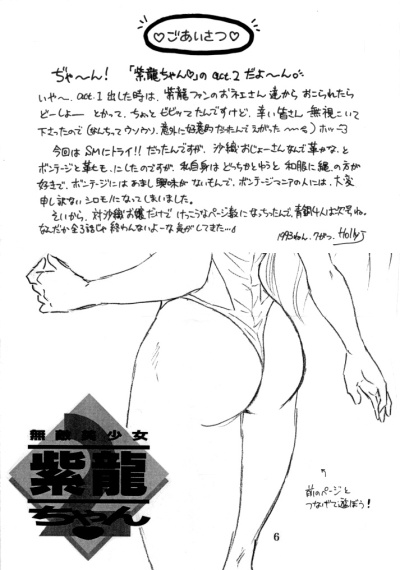 ♡ごあいさつ♡
ぢゃ〜ん! 「紫龍ちゃん♡」の act.2 だよ〜ん。
いや〜、act.1 出した時は、紫龍ファンのおネエさん達からおこられたら
どーしよー とかって、ちょっとビビッてたんですけど、幸い皆さん無視こいて
下さったので(なんちってウソウソ、意外に好意的だったんでよかった〜〜)ホッ…
今回はSMにトライ!! だったんですが、沙織おじょーさんなんで華かな、と
ボンテージと革ヒモ、にしたのですが、私自身はどっちかとゆうと和服に縄、の方が
好きで、ボンテージにはあまし興味がないもんで、ボンテージマニアの人には、大変
申し訳ないシロモノになってしまいました。
そいから、対沙織お嬢だけでけっこうなページ数になっちったんで、青銅4人は次号ね。
なんだか全3話じゃ終わんないよーな気がしてきた…
1993ねん、7がつ、Holly J
無敵美少女
紫龍
ちゃん
前のページと
つなげて遊ぼう!
6